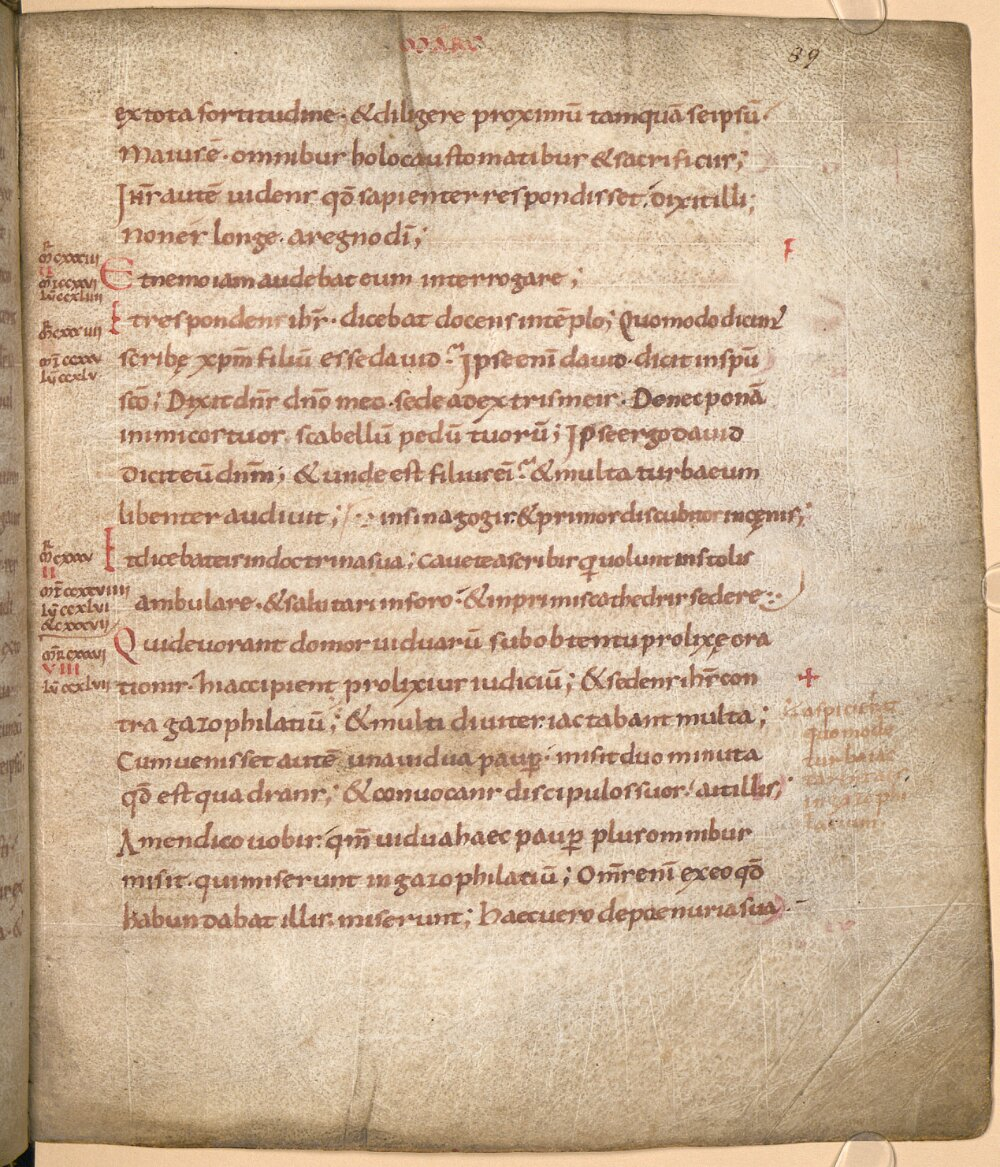 MARC
89
ex tota fortitudine · & diligere proximū tamquā seipsū ·
Maius ē · omnibus holocaustomatibus & sacrificiis ;
Ihs̄ autē uidens qđ sapienter respondisset · dixit illi ;
non es longe · a regno dī ;
Et nemo iam audebat eum interrogare ;
Et respondens ihs̄ · dicebat docens in tēplo ; Quomodo dicunt
scribę xp̄m filiū esse dauid · Ipse enī dauid · dicit in sp̄u
sc̄o ; Dixit dn̄s dn̄o meo · sede a dextris meis · Donec ponā
inimicos tuos · scabellū pedū tuorū ; Ipse ergo dauid
dicit eū dn̄m ; & unde est filius eī · & multa turba eum
libenter audiuit ; in sinagogis · & primos discubitos in cęnis ;
Et dicebat eis in doctrina sua ; Cauete a scribis qui uolunt in stolis
ambulare · & salutari in foro · & in primis cathedris sedere
Qui deuorant domos uiduarū sub obtentu prolixę ora
tionis · hi accipient prolixius iudiciū ; & sedens ihs̄ con
tra gazophilatiū ; & multi diuites iactabant multa ;
Cum uenisset autē una uidua paup̄ · misit duo minuta
qđ est quadrans ; & conuocans discipulos suos · ait illis ;
Amen dico uobis · qm̄ uidua haec paup̄ plus omnibus
misit · qui miserunt in gazophilatiū ; Om̄s enī ex eo qđ
habundabat illis · miserunt ; haec uero de poenuria sua ·
mr̄ cxxxiii
mt̄ ccxxvi
lū ccxliiii
mr̄ cxxxiiii
mt̄ ccxxv
lū ccxlv
mr̄ cxxxv
II
mt̄ ccxxviiii
lū ccxlvi
& cxxxvii
mr̄ cxxxvi
VIII
lū ccxlvii
aspiciebat
quomodo
turba
in gazophi
latium